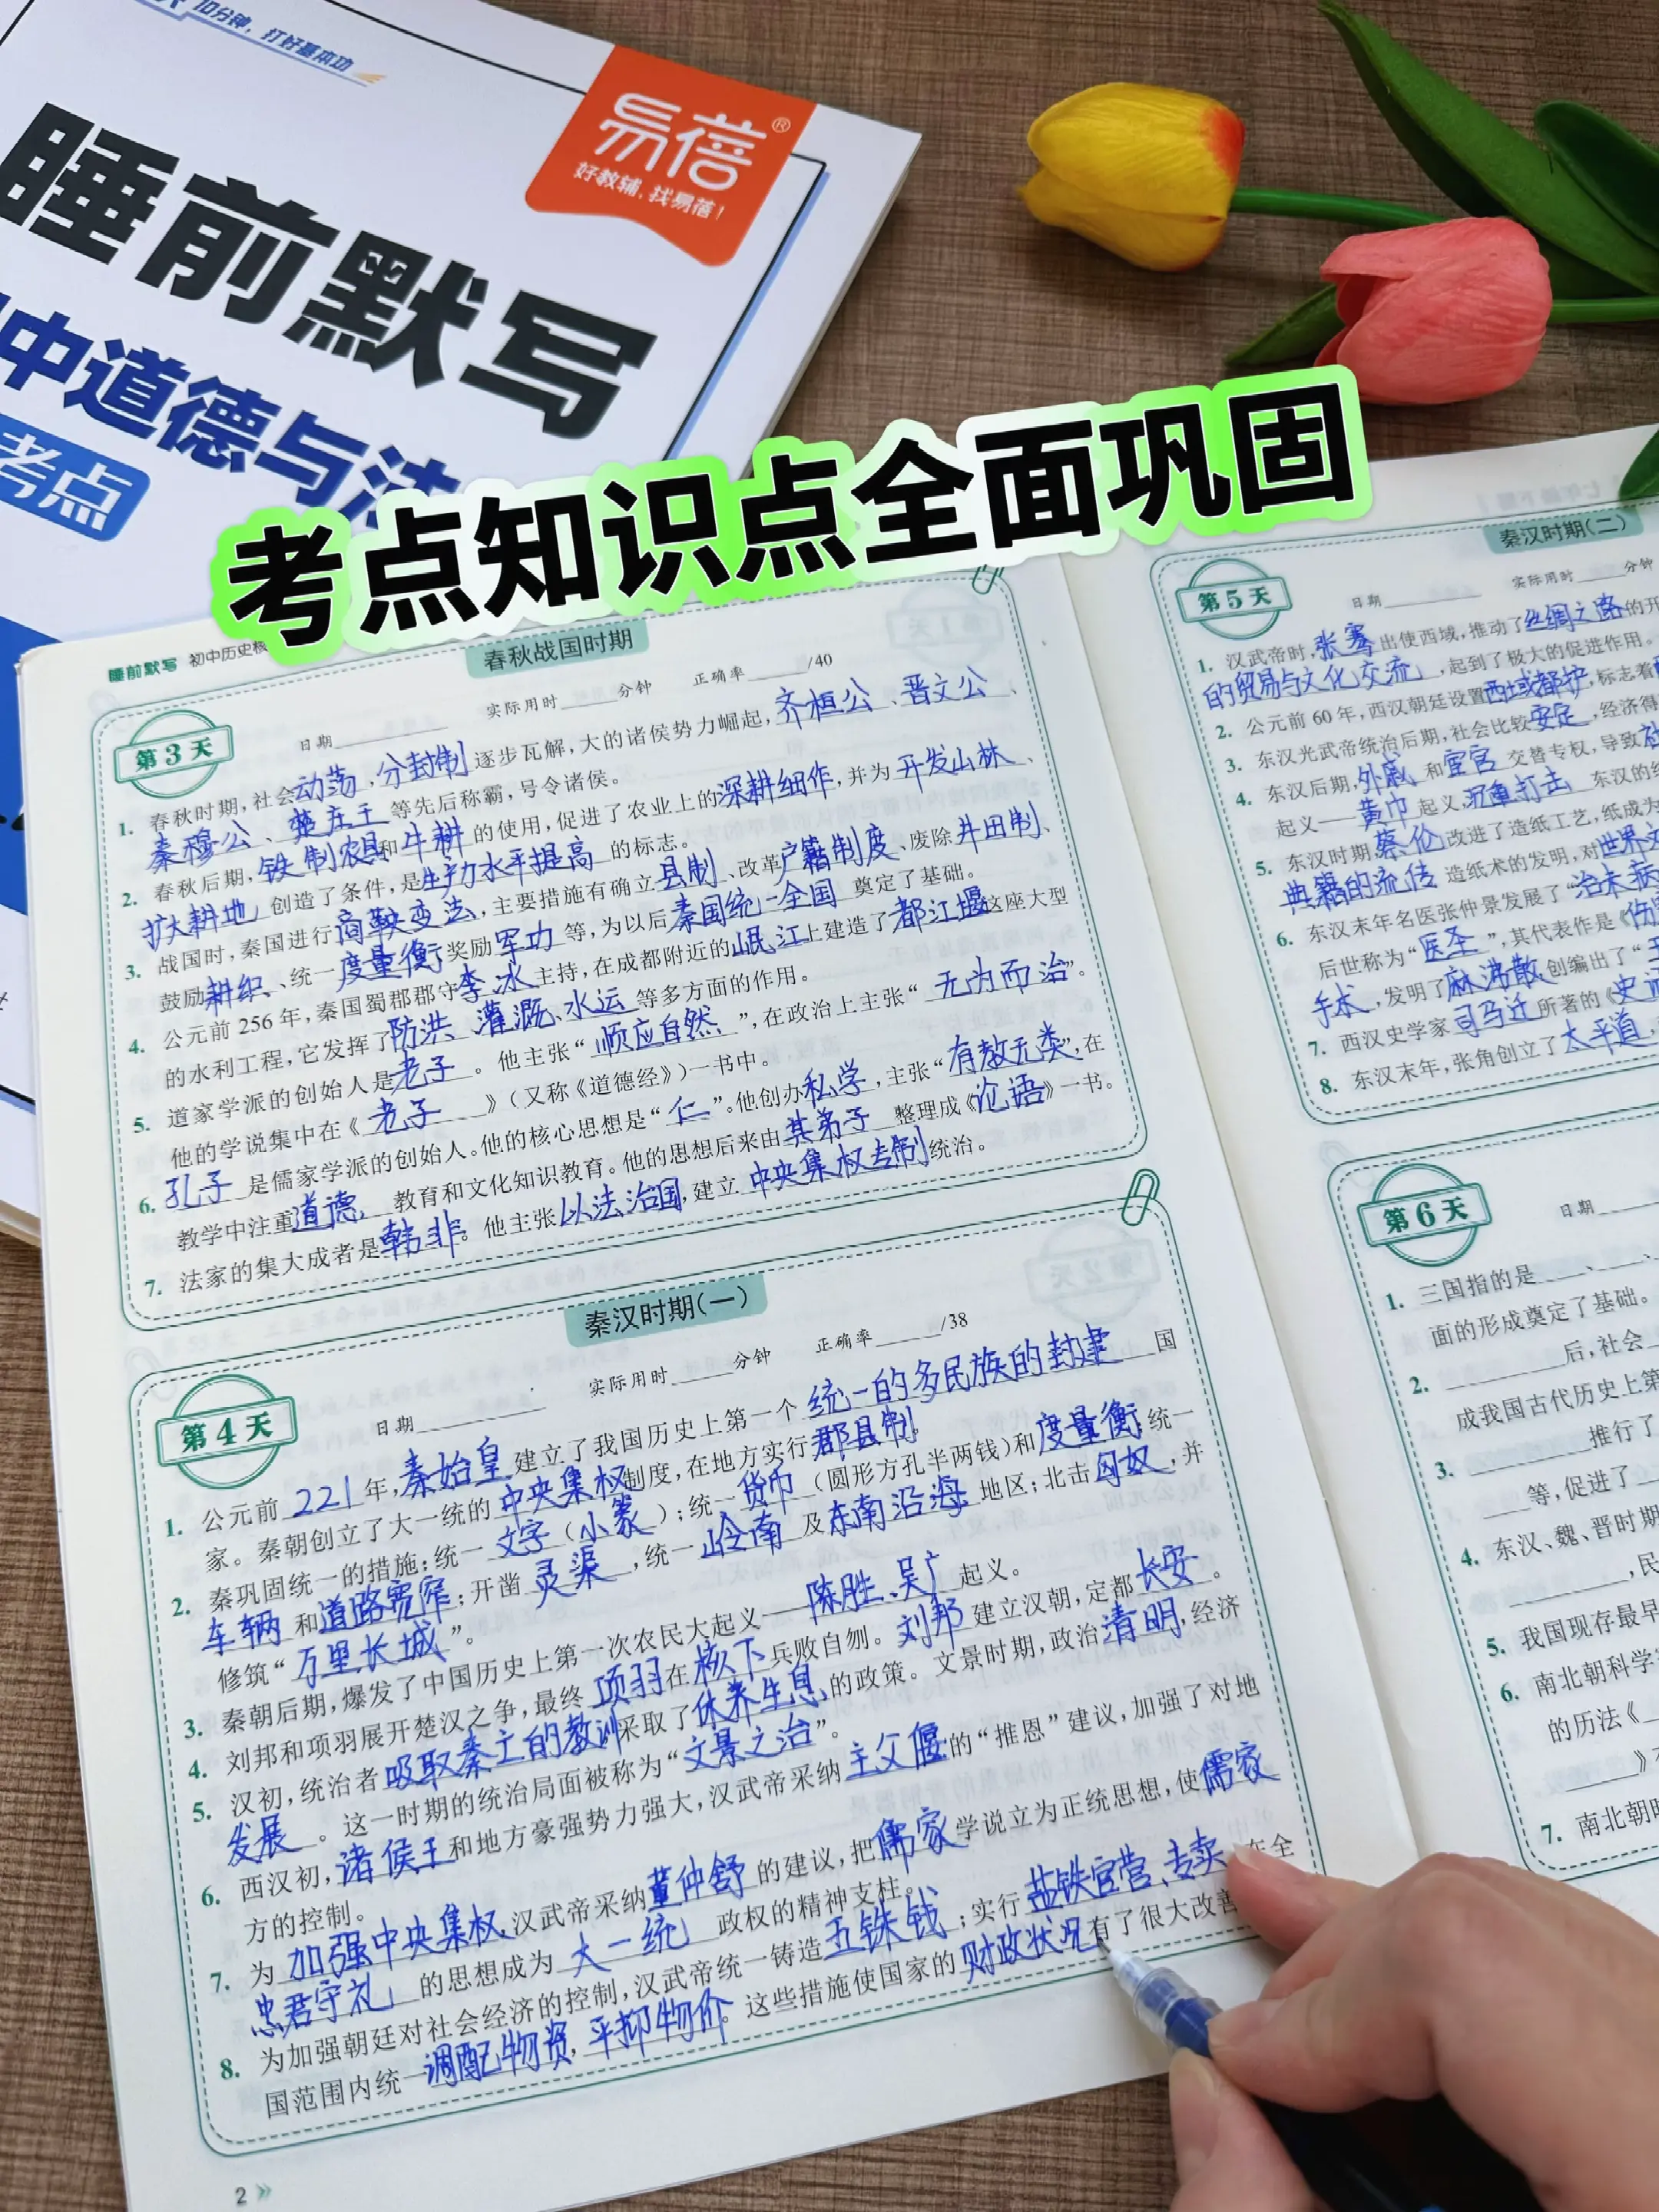 10分钟，打好基本功
易蓓®
好教辅，找易蓓！
睡前默写
中道德与法
考点
考点知识点全面巩固
睡前默写 初中历史核
春秋战国时期
第3天
日期 实际用时 分钟 正确率 /40
1. 春秋时期，社会动荡，分封制逐步瓦解，大的诸侯势力崛起，齐桓公、晋文公、
秦穆公、楚庄王等先后称霸，号令诸侯。
2. 春秋后期，铁制农具和牛耕的使用，促进了农业上的深耕细作，并为开发山林、
扩大耕地创造了条件，是生产力水平提高的标志。
3. 战国时，秦国进行商鞅变法，主要措施有确立县制、改革户籍制度、废除井田制、
鼓励耕织、统一度量衡、奖励军功等，为以后秦国统一全国奠定了基础。
4. 公元前256年，秦国蜀郡郡守李冰主持，在成都附近的岷江上建造了都江堰这座大型
的水利工程，它发挥了防洪、灌溉、水运等多方面的作用。
5. 道家学派的创始人是老子。他主张“顺应自然”，在政治上主张“无为而治”。
他的学说集中在《老子》（又称《道德经》）一书中。
6. 孔子是儒家学派的创始人。他的核心思想是“仁”。他创办私学，主张“有教无类”，在
教学中注重道德教育和文化知识教育。他的思想后来由其弟子整理成《论语》一书。
7. 法家的集大成者是韩非。他主张以法治国，建立中央集权专制统治。
秦汉时期（一）
第4天
日期 实际用时 分钟 正确率 /38
1. 公元前221年，秦始皇建立了我国历史上第一个统一的多民族的封建国
家。秦朝创立了大一统的中央集权制度，在地方实行郡县制。
2. 秦巩固统一的措施：统一文字（小篆）；统一货币（圆形方孔半两钱）和度量衡；统一
车辆和道路宽窄；开凿灵渠，统一岭南及东南沿海地区；北击匈奴，并
修筑“万里长城”。
3. 秦朝后期，爆发了中国历史上第一次农民大起义——陈胜、吴广起义。
4. 刘邦和项羽展开楚汉之争，最终项羽在核下兵败自刎。刘邦建立汉朝，定都长安。
5. 汉初，统治者吸取秦亡的教训采取了休养生息的政策。文景时期，政治清明，经济
发展。这一时期的统治局面被称为“文景之治”。
6. 西汉初，诸侯王和地方豪强势力强大，汉武帝采纳主父偃的“推恩”建议，加强了对地
方的控制。
7. 为加强中央集权，汉武帝采纳董仲舒的建议，把儒家学说立为正统思想，使儒家
忠君守礼的思想成为大一统政权的精神支柱。
8. 为加强朝廷对社会经济的控制，汉武帝统一铸造五铢钱；实行盐铁官营、专卖，在全
国范围内统一调配物资，平抑物价。这些措施使国家的财政状况有了很大改善
2
秦汉时期（二）
第5天
日期 实际用时 分钟
1. 汉武帝时，张骞出使西域，推动了丝绸之路的开
的贸易与文化交流，起到了极大的促进作用。
2. 公元前60年，西汉朝廷设置西域都护，标志着
3. 东汉光武帝统治后期，社会比较安定，经济得
4. 东汉后期，外戚和宦官交替专权，导致
起义——黄巾起义，沉重打击东汉的统
5. 东汉时期，蔡伦改进了造纸工艺，纸成为
典籍的流传 造纸术的发明，对世界文
6. 东汉末年名医张仲景发展了“治未病
后世称为“医圣”，其代表作是《伤
手术，发明了麻沸散，创编出了“五
7. 西汉史学家司马迁所著的《史记
8. 东汉末年，张角创立了太平道，
第6天
日期
1. 三国指的是 、 、
面的形成奠定了基础。
2. 后，社会
成我国古代历史上第
3. 推行了
等，促进了
4. 东汉、魏、晋时期
，民
5. 我国现存最早
6. 南北朝科学家
的历法《
》
7. 南北朝时